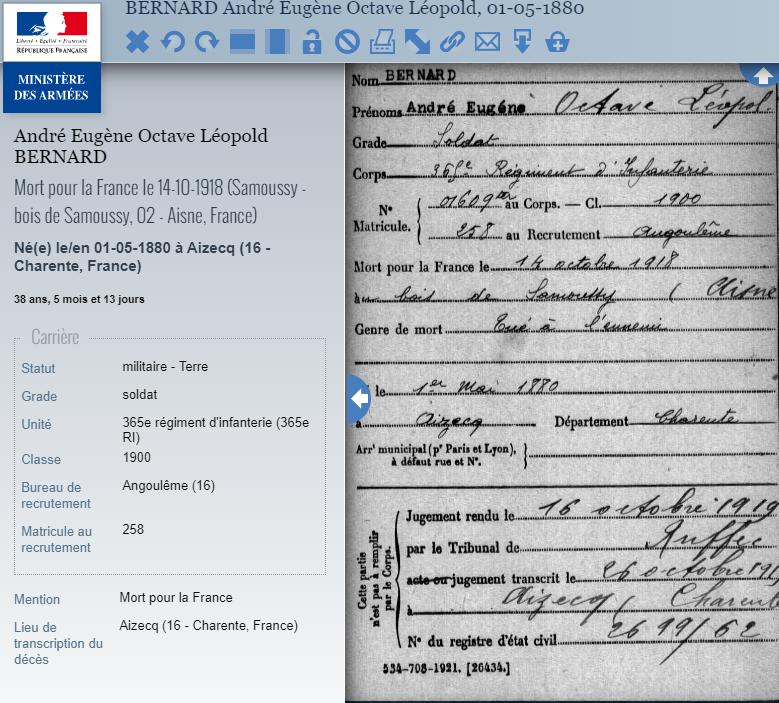 BERNARD André Eugène Octave Léopold, 01-05-1880
Liberté • Égalité • Fraternité
RÉPUBLIQUE FRANÇAISE
MINISTÈRE
DES ARMÉES
André Eugène Octave Léopold
BERNARD
Mort pour la France le 14-10-1918 (Samoussy -
bois de Samoussy, 02 - Aisne, France)
Né(e) le/en 01-05-1880 à Aizecq (16 -
Charente, France)
38 ans, 5 mois et 13 jours
Carrière
Statut militaire - Terre
Grade soldat
Unité 365e régiment d'infanterie (365e
RI)
Classe 1900
Bureau de
recrutement Angoulême (16)
Matricule au
recrutement 258
Mention Mort pour la France
Lieu de
transcription du
décès Aizecq (16 - Charente, France)
Nom BERNARD
Prénoms André Eugéne Octave Léopol
Grade Soldat
Corps 365e Régiment d'Infanterie
N°
Matricule.
01609 au Corps. — Cl. 1900
258 au Recrutement Angoulême
Mort pour la France le 14 octobre 1918
à bois de Samoussy ( Aisne
Genre de mort Tué à l'ennemi
le 1er Mai 1880
à Aizecq Département Charente
Arrt municipal (pr Paris et Lyon),
à défaut rue et N°.
Cette partie
n'est pas à remplir
par le Corps.
Jugement rendu le 16 octobre 1919
par le Tribunal de Ruffec
acte ou jugement transcrit le 26 octobre 191
à Aizecq ( Charent
N° du registre d'état civil 2699/62
534-708-1921. [26434.]